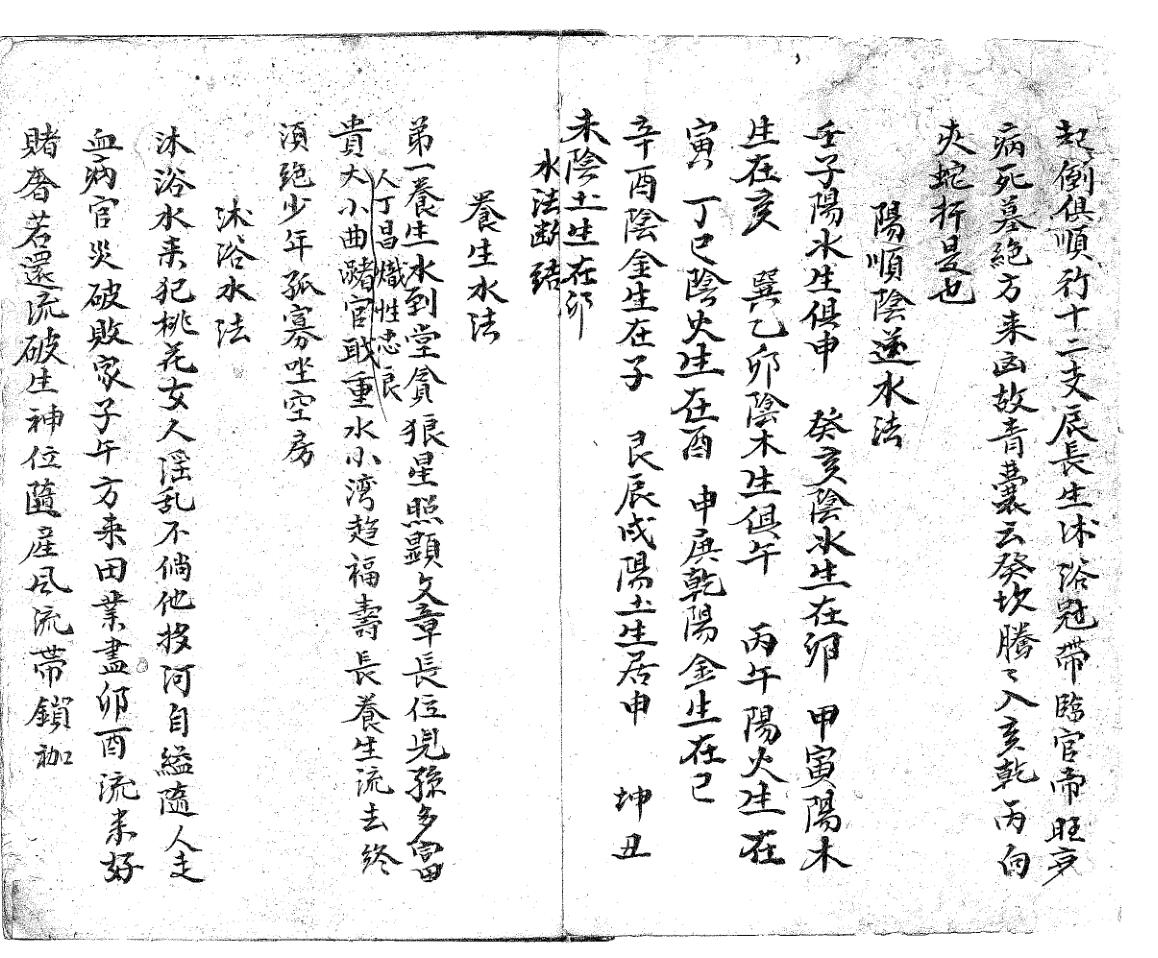 起倒俱順行十二支辰長生沐浴冠帶臨官帝旺衰
病死墓絕方来凶故青囊云癸坎騰〻入亥乾丙向
夾蛇折是也
陽順陰逆水法
壬子陽水生俱申　癸亥陰水生在卯　甲寅陽木
生在亥　巽乙卯陰木生俱午　丙午陽火生在
寅　丁巳陰火生在酉　申庚乾陽金生在巳
辛酉陰金生在子　艮辰戌陽土生居申　坤丑
未陰土生在卯
水法断結
養生水法
第一養生水到堂貪狼星照顯文章長位児孫多富
人丁昌熾性忠良
貴大小曲豬官职重水小湾趋福壽長養生流去終
須絕少年孤寡坐空房
沐浴水法
沐浴水来犯桃花女人淫乱不倘他投河自縊隨人走
血病官災破敗家子午方来田業盡卯酉流来好
賭奢若還流破生神位隨産風流帶鎖枷